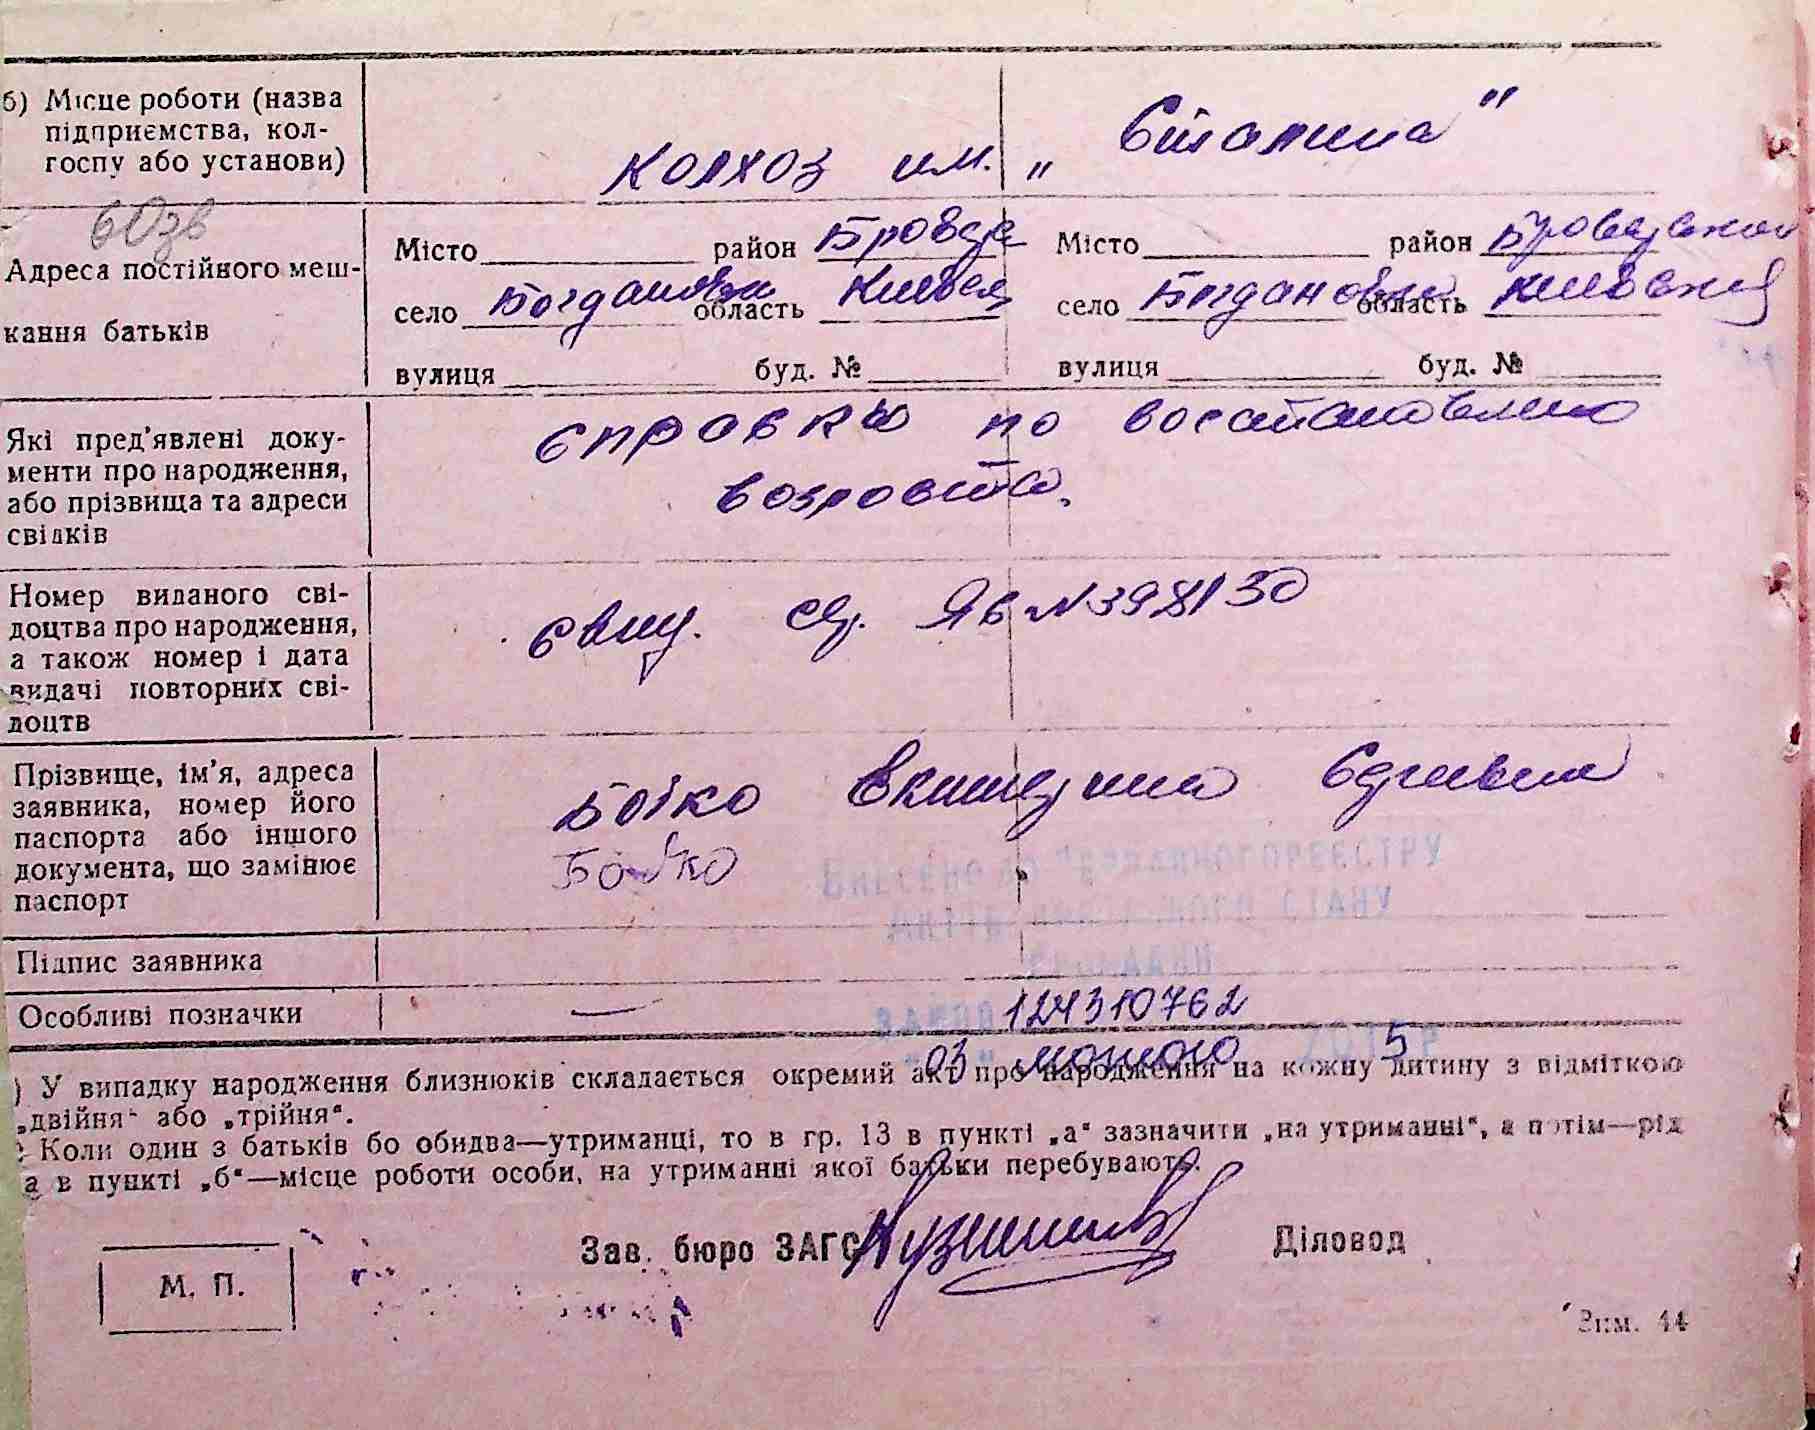 б) Місце роботи (назва
підприємства, кол-
госпу або установи)
колхоз им. „ Сталина "
60зв
Адреса постійного меш-
кання батьків
Місто район Бровар
село Богдановка область Киевск
вулиця буд. №
Місто район Броварской
село Богдановка область Киевская
вулиця буд. №
Які пред'явлені доку-
менти про народження,
або прізвища та адреси
свідків
справка по восстановлению
возраста.
Номер виданого сві-
доцтва про народження,
а також номер і дата
видачі повторних сві-
доцтв
св. ЯБ N 398130
Прізвище, ім'я, адреса
заявника, номер його
паспорта або іншого
документа, що замінює
паспорт
Бойко Екатерина
Бойко
Внесено до Державного реєстру
актів цивільного стану
громадян
Підпис заявника
Особливі позначки
—
124310762
03 лютого 2015 р
) У випадку народження близнюків складається окремий акт про народження на кожну дитину з відміткою
„двійня" або „трійня".
Коли один з батьків бо обидва—утриманці, то в гр. 13 в пункті „а" зазначити „на утриманні", а потім—рід
а в пункті „б"—місце роботи особи, на утриманні якої батьки перебувають.
Зав. бюро ЗАГС
Діловод
М. П.
Зим. 44